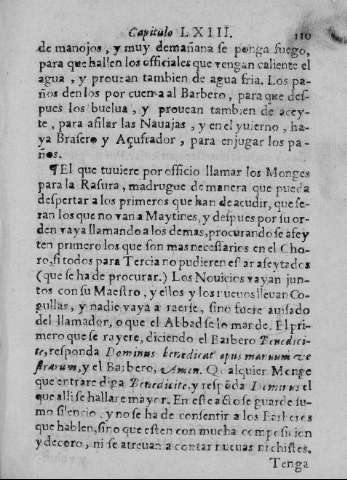 Capitulo LXIII. 110
de manojos, y muy demañana se ponga fuego,
para que hallen los officiales que vengan caliente el
agua, y prouean tambien de agua fria. Los pa-
ños denlos por cuenta al Barbero, para que des-
pues los buelua, y prouean tambien de azey-
te, para afilar las Nauajas, y en el yuierno, ha-
ya Brasero y Açufrador, para enjugar los pa-
ños.
¶El que tuuiere por officio llamar los Monges
para la Rasura, madrugue de manera que pueda
despertar a los primeros que han de acudir, que se-
ran los que no van a Maytines, y despues por su or-
den vaya llamando a los demas, procurando se afey
ten primero los que son mas necessarios en el Cho-
ro, si todos para Tercia no pudieren estar afeytados
(que se ha de procurar.) Los Nouicios vayan jun-
tos con su Maestro, y ellos y los nueuos lleuan Co-
gullas, y nadie vaya a raerse, sino fuere auisado
del llamador, o que el Abbad se lo mande. El pri-
mero que se rayere, diciendo el Barbero Benedici-
te, responda Dominus benedicat opus manuum ve
strarum, y el Barbero, Amen. Qualquier Monge
que entrare diga Benedicite, y respõda Dominus el
que alli se hallare mayor. En este acto se guarde su-
mo silencio, y no se ha de consentir a los Barberos
que hablen, sino que esten con mucha composicion
y decoro, ni se atreuan a contar nueuas ni chistes.
Tenga